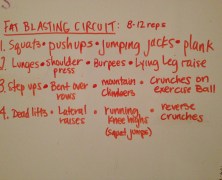 FAT BLASTING CIRCUIT: 8-12 reps
1. Squats • pushups • jumping jacks • plank
2. Lunges • Shoulder press • Burpees • Lying Leg raise
3. Step ups • Bent over rows • mountain climbers • crunches on exercise Ball
4. Dead lifts • Lateral raises • running knee highs (squat jumps) • reverse crunches